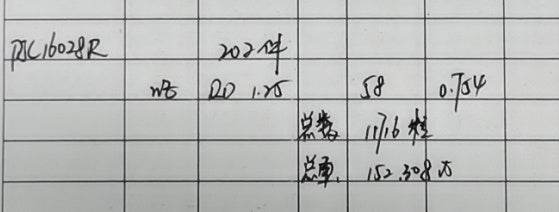 PJC16028R 202件
RD 1.25 58 0.754
总数 11716 粒
总重 152.308